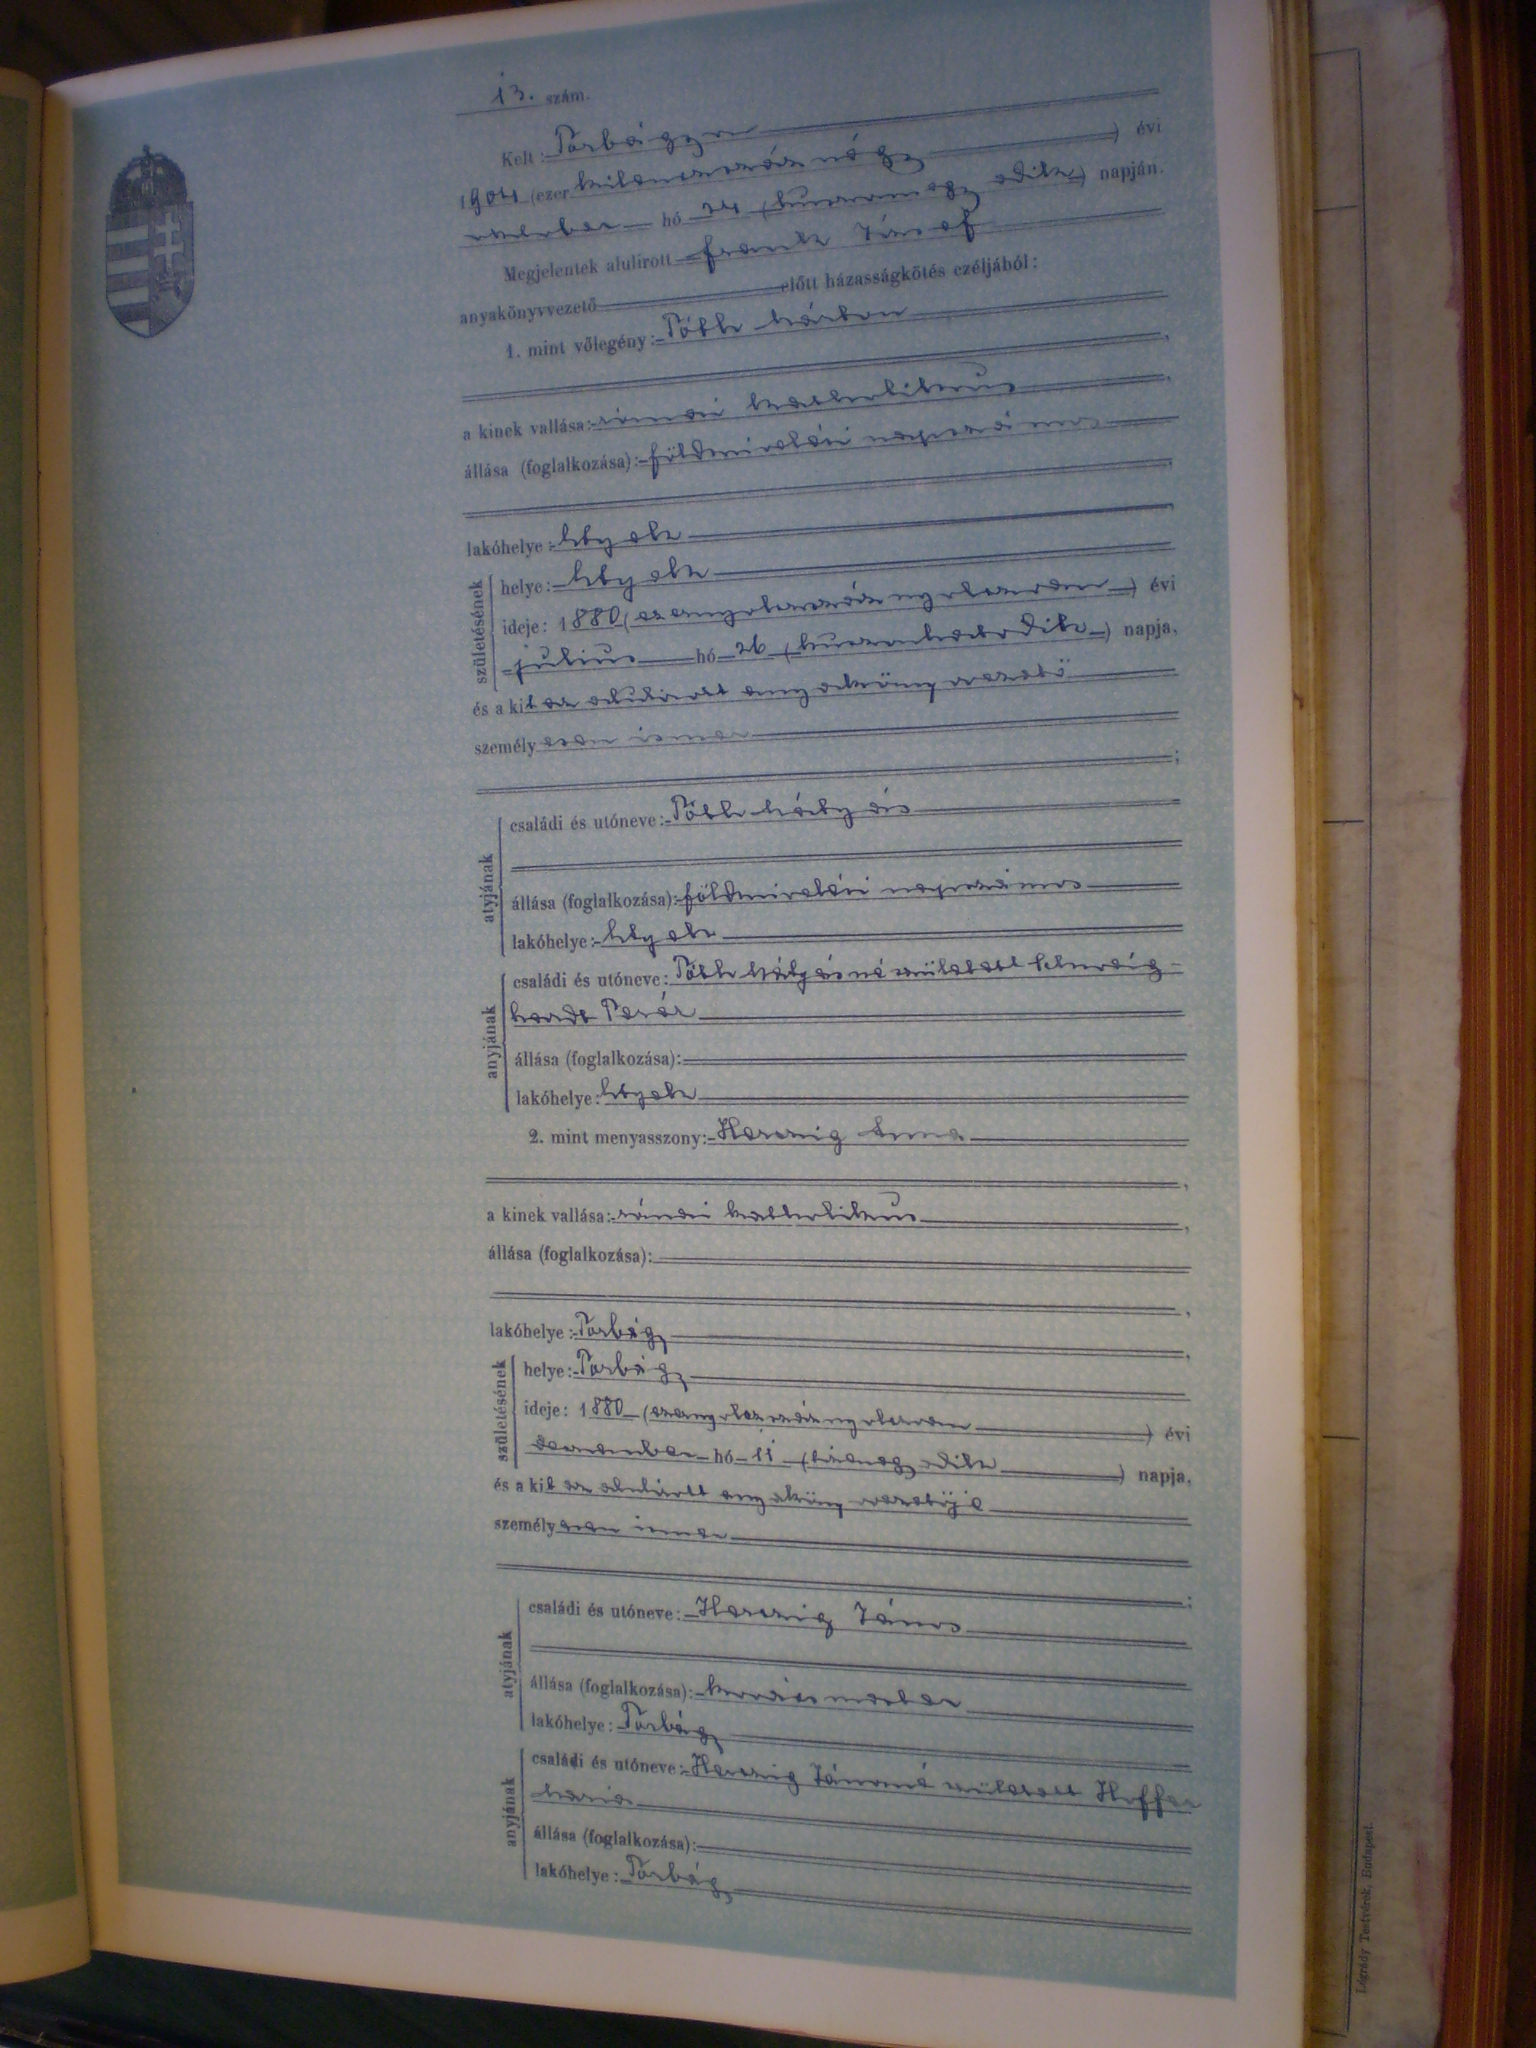 13. szám.
Kelt: Torbágyon
1904 (ezer kilenczszáz négy) évi
október hó 24 (huszonnegyedik) napján.
Megjelentek alulírott Frank József
anyakönyvvezető előtt házasságkötés czéljából:
1. mint vőlegény: Tóth Márton
a kinek vallása: római katholikus
állása (foglalkozása): földmivelési napszámos
lakóhelye: Etyek
születésének
helye: Etyek
ideje: 1880 (ezernyolczszáznyolczvan) évi
julius hó 26 (huszonhatodik) napja,
és a kit az alulírott anyakönyvvezető
személyesen ismer
;
atyjának
családi és utóneve: Tóth Mátyás
állása (foglalkozása): földmivelési napszámos
lakóhelye: Etyek
anyjának
családi és utóneve: Tóth Mátyásné született
hardt Teréz
állása (foglalkozása):
lakóhelye: Etyek
2. mint menyasszony: Herczig Anna
a kinek vallása: római katholikus
állása (foglalkozása):
lakóhelye: Torbágy
születésének
helye: Torbágy
ideje: 1880 (ezernyolczszáznyolczvan) évi
deczember hó 11 (tizenegyedik) napja,
és a kit az alulírott anyakönyvvezető
személyesen ismer
;
atyjának
családi és utóneve: Herczig János
állása (foglalkozása): kovácsmester
lakóhelye: Torbágy
anyjának
családi és utóneve: Herczig Jánosné született Hoffer
Mária
állása (foglalkozása):
lakóhelye: Torbágy
Légrády Testvérek, Budapest.